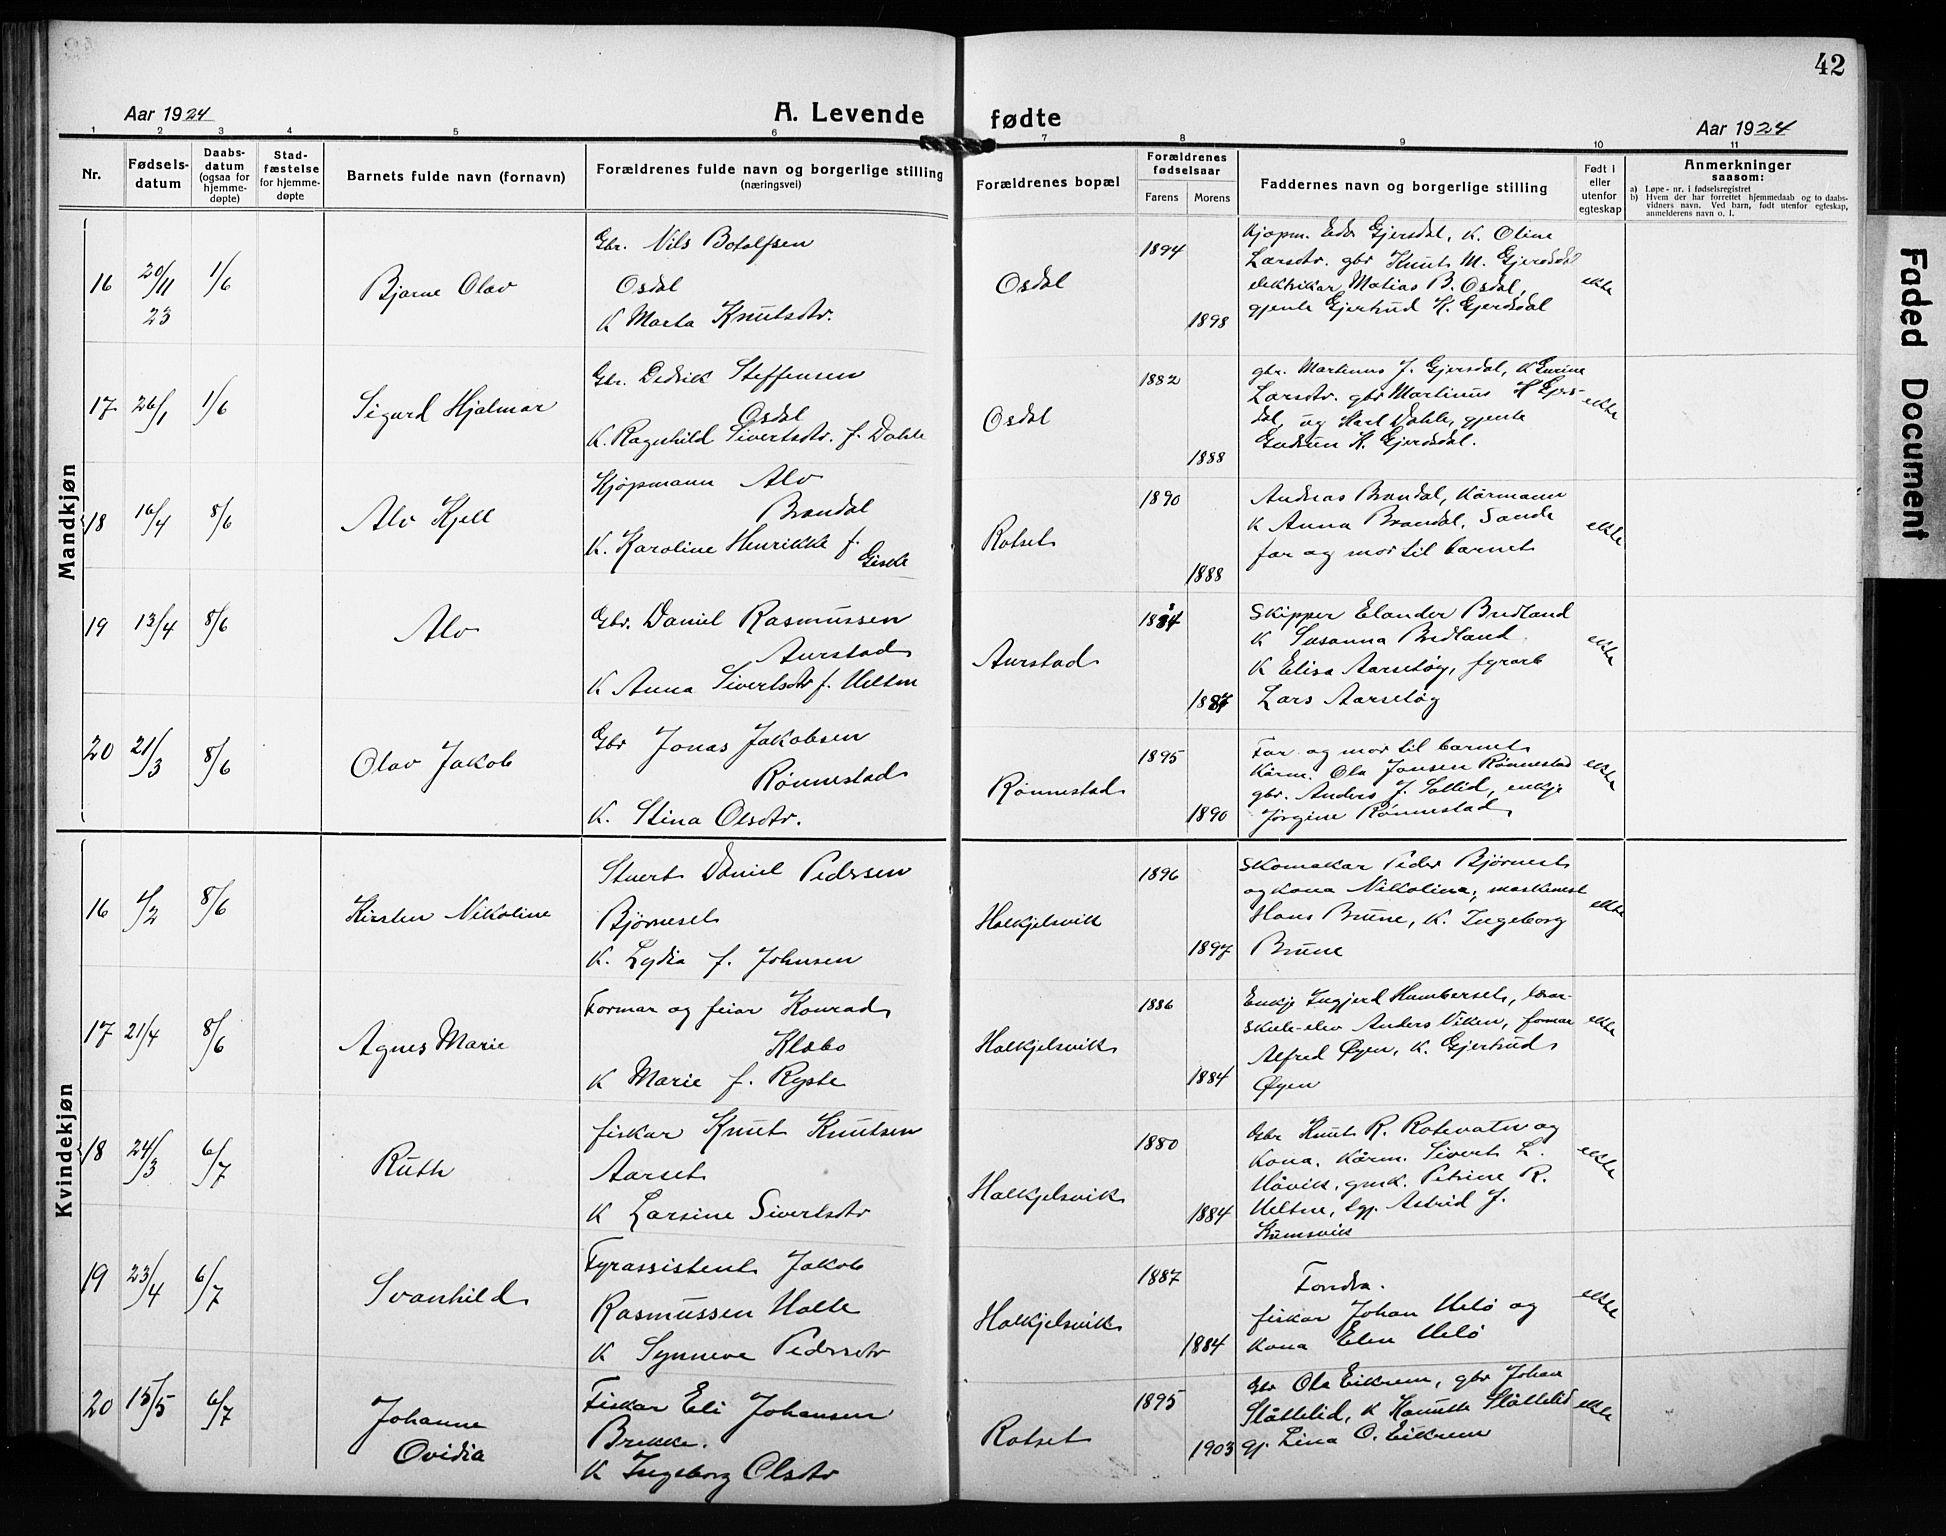 42
Aar 1924
A. Levende fødte
Aar 1924
1 2 3 4 5 6 7 8 9 10 11
Nr.
Fødsels-
datum
Daabs-
datum
(ogsaa for
hjemme-
døpte)
Stad-
fæstelse
for hjemme-
døpte
Barnets fulde navn (fornavn)
Forældrenes fulde navn og borgerlige stilling
(næringsvei)
Forældrenes bopæl
Forældrenes
fødselsaar
Farens Morens
Faddernes navn og borgerlige stilling
Født i
eller
utenfor
egteskap
Anmerkninger
saasom:
a) Løpe-nr. i fødselsregistret
b) Hvem der har forrettet hjemmedaab og to daabs-
vidners navn. Ved barn, født utenfor egteskap,
anmelderens navn o. l.
Mandkjøn
16 20/11 23 1/6 Bjarne Olav
Gbr. Nils Botolfsen
Osdal
K Marta Knutsdtr.
Osdal
1894
1898
Kjøpm. Edv Gjersdal, K. Oline
Larsdtr. gbr Knut M. Gjerdsdal
elektrikar Matias B. Osdal,
gjente Gjertrud K. Gjerdsdal
ekte
17 26/1 1/6 Sigurd Hjalmar
Gbr. Dedrik Steffensen
Osdal
K. Ragnhild Sivertsdtr. f. Dahle
Osdal
1882
1888
gbr. Martinus J. Gjersdal, K
Larsdtr. gbr Martinus K
dal, og Karl Dahle, gjente
Gudrun K. Gjerdsdal.
ekte
18 16/4 8/6 Alv Kjell
Kjøpmann Alv
Brandal
K. Karoline Henrikke f.
Giske
Rotset
1890
1888
Andreas Brandal, Kårmann
K Anna Brandal, Sande
far og mor til barnet
ekte
19 13/4 8/6 Alv
Gbr. Daniel Rasmussen
Aurstad
K Anna Sivertsdtr f. Velten
Aurstad
1884
1887
Skipper Elander Bredland
K Susanna Bredland
K Elisa Aarsetøg, fyrarb
Lars Aarsetøg
ekte
20 21/3 8/6 Olav Jakob
Gbr Jonas Jakobsen
Rønnestad
K. Stina Olsdtr.
Rønnestad
1895
1890
Far og mor til barnet
Kårm. Ola Jonsen Rønnestad
gbr. Anders J. Sollid, enkje
Jørgine Rønnestad
ekte
Kvindekjøn
16 4/2 8/6 Kirsten Nikoline
Stuert Daniel Pedersen
Bjørneset
K. Lydia f. Johnsen
Halkjelsvik
1896
1897
Skomakar Peder Bjørneset
og kona Nikolina, maskinist
Hans Brune, K. Ingeborg
Brune
ekte
17 21/4 8/6 Agnes Marie
Formar og feiar Konrad
Klæbo
K Marie f. Ryste
Halkjelsvik
1886
1884
Enkje Ingjerd Humberset, lærar-
skule-elev Anders Viken, formar
Alfred Øyen, K. Gjertrud
Øyen
ekte
18 24/3 6/7 Ruth
fiskar Knut Knutsen
Aarset
K Larsine Sivertsdtr
Halkjelsvik
1880
1884
Gbr Knut R. Rotevatn og
kona. Kårm. Sivert L.
Håvik, gmk. Petrine R.
Velten, Astrid J.
Kumsvik
ekte
19 23/4 6/7 Svanhild
Fyrassistent Jakob
Rasmussen Halle
K Synneve Pedersdtr
Halkjelsvik
1887
1884
fiskar Johan Velø og
kona Elen Velø
ekte
20 15/5 6/7 Johanne
Ovidia
Fiskar Eli Johansen
Brekke.
K Ingeborg Olsdtr
Rotset
1895
1903
Gbr Ola Eikrem, gbr Johan
Slåttelid, K Slåttelid
gj. Lina O. Eikrem
ekte
Faded Document